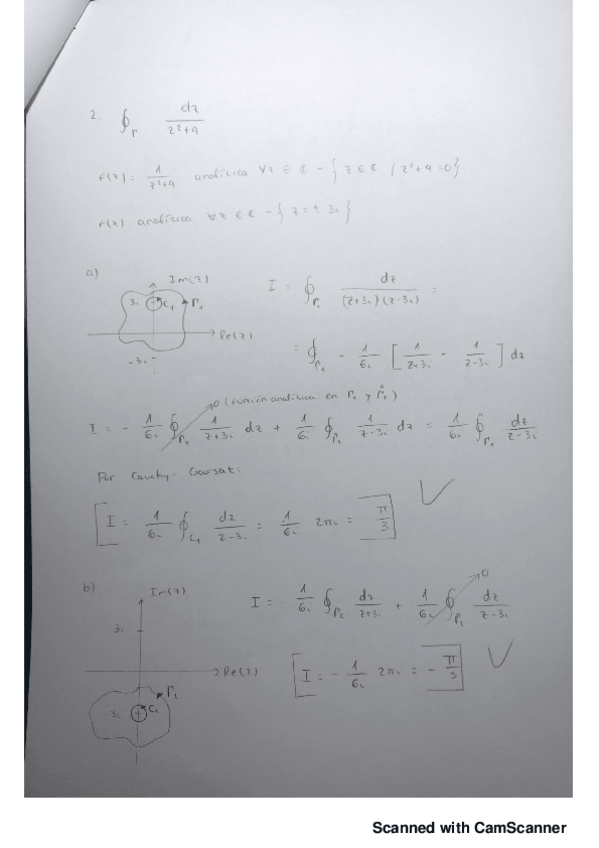 2. ∮_Γ dz / (z²+9)
f(z) = 1/(z²+9) analítica ∀z ∈ ℂ - {z ∈ ℂ / z²+9=0}
f(z) analítica ∀z ∈ ℂ - {z = ±3i}
a)
Im(z)
3i C₁ Γ₁
Re(z)
-3i
I = ∮_Γ₁ dz / ((z+3i)(z-3i)) =
= ∮_Γ₁ - 1/6i [1/(z+3i) - 1/(z-3i)] dz
0 (función analítica en Γ₁ y Γ̊₁)
I = - 1/6i ∮_Γ₁ 1/(z+3i) dz + 1/6i ∮_Γ₁ 1/(z-3i) dz = 1/6i ∮_Γ₁ dz/(z-3i)
Por Cauchy-Goursat:
[I = 1/6i ∮_C₁ dz/(z-3i) = 1/6i 2πi = π/3]
b)
Im(z)
3i
Re(z)
Γ₂
-3i C₂
0
I = - 1/6i ∮_Γ₂ dz/(z+3i) + 1/6i ∮_Γ₂ dz/(z-3i)
[I = - 1/6i 2πi = - π/3]
Scanned with CamScanner